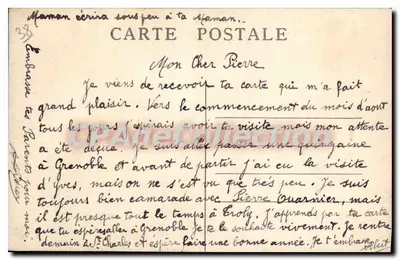 Maman écrira sous peu à ta Maman.
CARTE POSTALE
Mon Cher Pierre
Je viens de recevoir ta carte qui m'a fait
grand plaisir. Vers le commencement du mois d'aout
tous les jours j'espérais avoir ta visite mais mon attente
a été déçue. Je suis allé passer une quinzaine
à Grenoble et avant de partir j'ai eu la visite
d'Yves, mais on ne s'est vu que très peu. Je suis
toujours bien camarade avec Pierre, mais
il est presque tout le temps à Croly. J'apprends par ta carte
que tu espères aller à Grenoble je te le souhaite vivement. Je rentre
demain à St Charles et espère faire une bonne année. Je t'embrasse
Albert
Embrasse tes Parents pour moi.